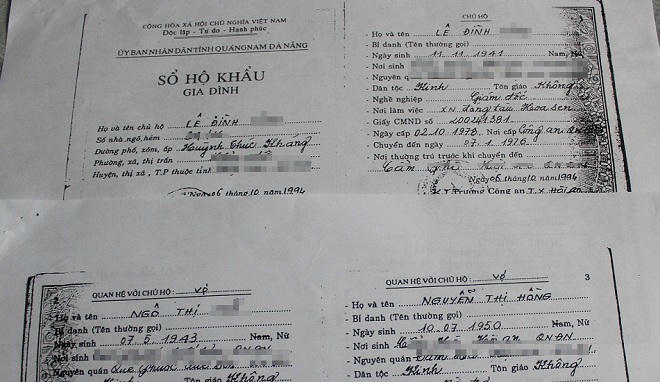 CỘNG HÒA XÃ HỘI CHỦ NGHĨA VIỆT NAM
Độc lập - Tự do - Hạnh phúc
ỦY BAN NHÂN DÂN TỈNH QUẢNG NAM ĐÀ NẴNG
SỔ HỘ KHẨU
GIA ĐÌNH
Họ và tên chủ hộ LÊ ĐÌNH
Số nhà ngõ, hẻm
Đường phố, xóm, ấp Huỳnh Thúc Kháng
Phường, xã, thị trấn
Huyện, thị xã, T.P thuộc tỉnh
Ngày 06 tháng 10 năm 1994
CHỦ HỘ
- Họ và tên LÊ ĐÌNH
- Bí danh (Tên thường gọi)
- Ngày sinh 11.11.1941 Nam, Nữ
- Nơi sinh
- Nguyên quán
- Dân tộc Kinh Tôn giáo Không
- Nghề nghiệp Giám đốc
- Nơi làm việc XN đóng tàu Hoa sen
- Giấy CMND số 200241381
- Ngày cấp 02.10.1978 Nơi cấp Công an
- Chuyển đến ngày 07.1.1976
- Nơi thường trú trước khi chuyển đến
Cẩm phô
Ngày 06 tháng 10 năm 1994
K.T Trưởng Công an T.X Hội An
QUAN HỆ VỚI CHỦ HỘ: Vợ
- Họ và tên NGÔ THỊ
- Bí danh (Tên thường gọi)
- Ngày sinh 07.5.1943 Nam, Nữ
- Nơi sinh QNĐN
- Nguyên quán Quế phước
Kinh Không
QUAN HỆ VỚI CHỦ HỘ: Vợ 3
- Họ và tên NGUYỄN THỊ HỒNG
- Bí danh (Tên thường gọi)
- Ngày sinh 10.07.1950 Nam, Nữ
- Nơi sinh QNĐN
- Nguyên quán
- Dân tộc Kinh Tôn giáo Không